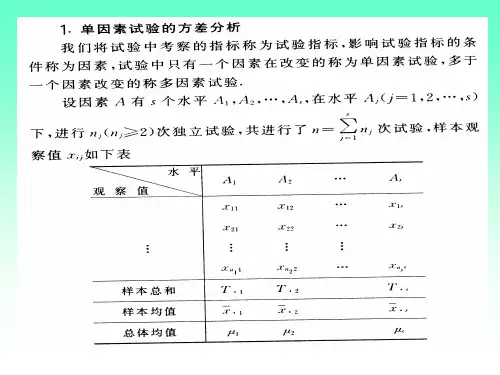 1. 单因素试验的方差分析
我们将试验中考察的指标称为试验指标,影响试验指标的条
件称为因素,试验中只有一个因素在改变的称为单因素试验,多于
一个因素改变的称多因素试验.
设因素 A 有 s 个水平 A₁,A₂,⋯,Aₛ,在水平 Aⱼ(j=1,2,⋯,s)
下,进行 nⱼ(nⱼ≥2)次独立试验,共进行了 n= ∑ˢⱼ₌₁ nⱼ 次试验,样本观
察值 xᵢⱼ如下表
水 平 A₁ A₂ ⋯ Aₛ
观 察 值
x₁₁ x₁₂ ⋯ x₁ₛ
x₂₁ x₂₂ ⋯ x₂ₛ
⋮ ⋮ ⋮ ⋮ ⋮
xₙ₁₁ xₙ₂₂ ⋯ xₙₛₛ
样本总和 T.₁ T.₂ T.ₛ
样本均值 x̄.₁ x̄.₂ x̄.ₛ
总体均值 μ₁ μ₂ μₛ